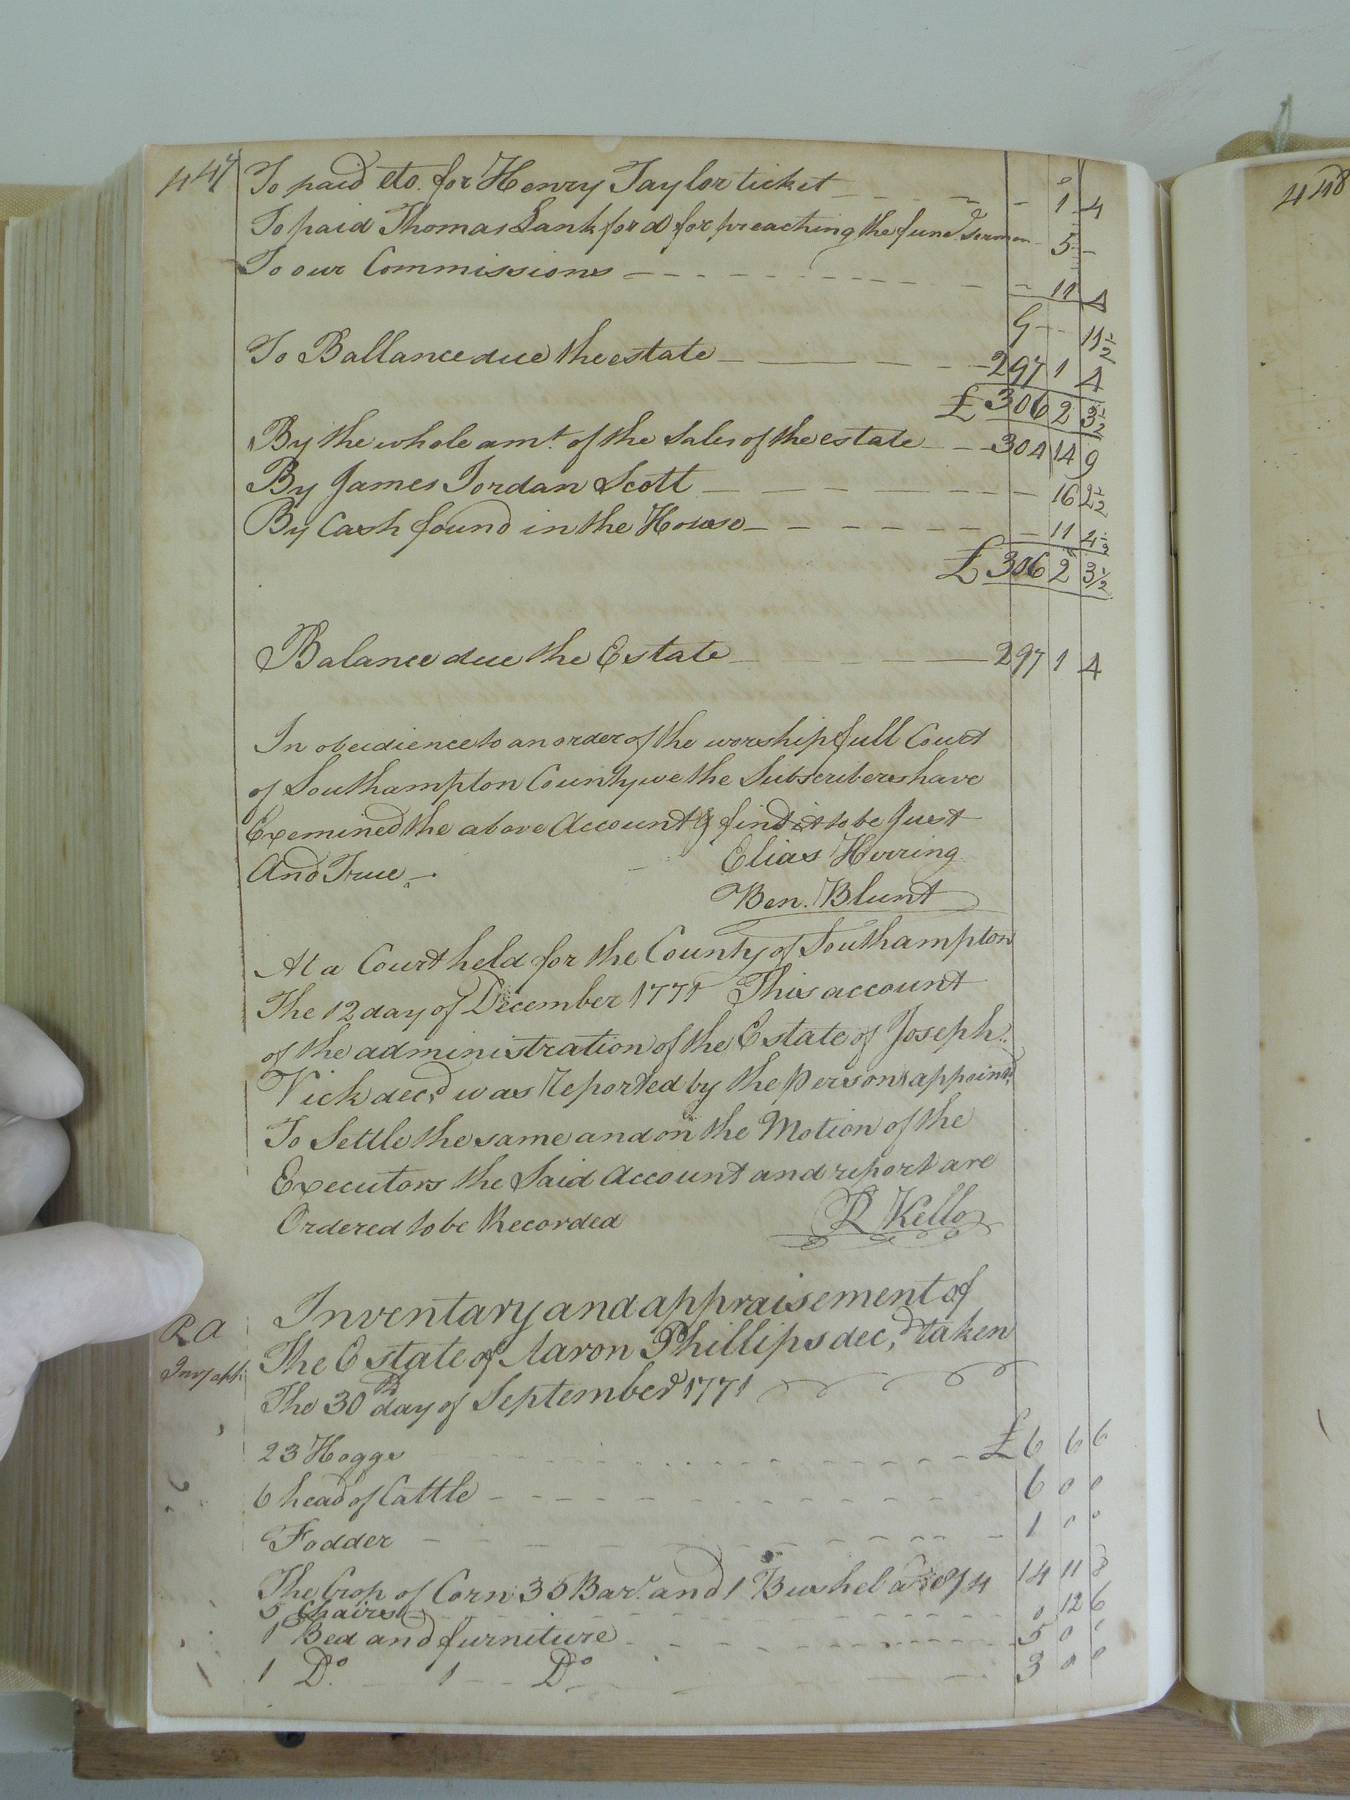 447 To paid do. for Henry Taylor ticket - - - 1 4
To paid Thomas Lankford for preaching the funl. sermon - 5 -
To our Commissions - - - - - - 11 4
9 - 11 1/2
To Ballance due the estate - - - 297 1 4
£ 306 2 3 1/2
By the whole amt. of the Sales of the estate - - 304 14 9
By James Jordan Scott - - - - - - 16 2 1/2
By Cash found in the House - - - - - - 11 4 1/2
£ 306 2 3 1/2
Balance due the Estate - - - 297 1 4
In obedience to an order of the worshipfull Court
of Southampton County we the Subscribers have
Exemined the above Account & find it to be Just
And True -
Elias Herring
Ben. Blunt
At a Court held for the County of Southampton
The 12 day of December 1771 This account
of the administration of the Estate of Joseph
Vick decd. was Reported by the persons appointd.
To Settle the same and on the Motion of the
Executors the Said Account and report are
Ordered to be Recorded R Kello
Inventary and appraisement of
P A The Estate of Aaron Phillips decd. taken
The 30th day of September 1771
23 Hoggs £ 6 6 6
6 head of Cattle - - - - 6 0 0
Fodder - - - - 1 0 0
The Crop of Corn 35 Bar. and 1 Bushel 14 11 8
5 Chairs 0 12 6
1 Bed and furniture - - - - 5 0 0
1 Do. - 1 - Do. - - - 3 0 0
448